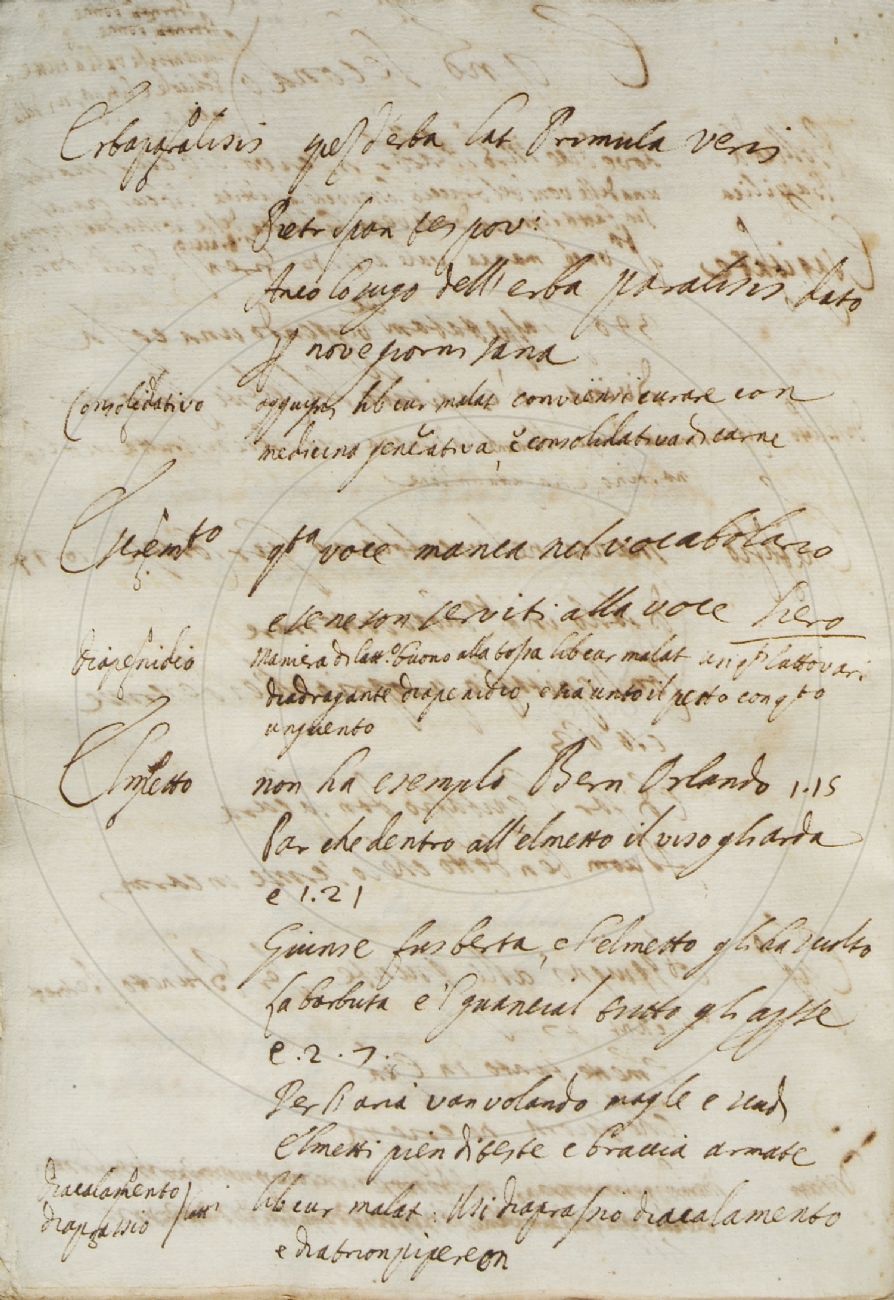 Erbaparalisis spez. d'erba lat Primula veris
Pietr span tes pov:
Anco lo sugo dell'erba paralisis dato
p nove giorni sana
Consolidativo lib cur malat conviensi curare con
medicina generativa, e consolidativa di carne
qta voce manca nel vocabolaro
e se ne son serviti alla voce siero
Diapenidio Maniera di latt.o buono alla tossa lib cur malat un qti lattovari
diadragante diapenidio, e sia unto il petto con qto
unguento
Elmetto non ha esempio Bern Orlando 1.15
Par che dentro all'elmetto il viso gli arda
e 1.21
Giunse fusberta, e l'elmetto gli ha sciolto
La barbuta e 'l guancial tutto gli afse
e. 2. 7.
Per l'aria van volando maglie e scudi
Elmetti pien di teste e braccia armate
diacalamento
diaprassio latti lib cur malat: Usi diaprassio diacalamento
e diatrionpipereon